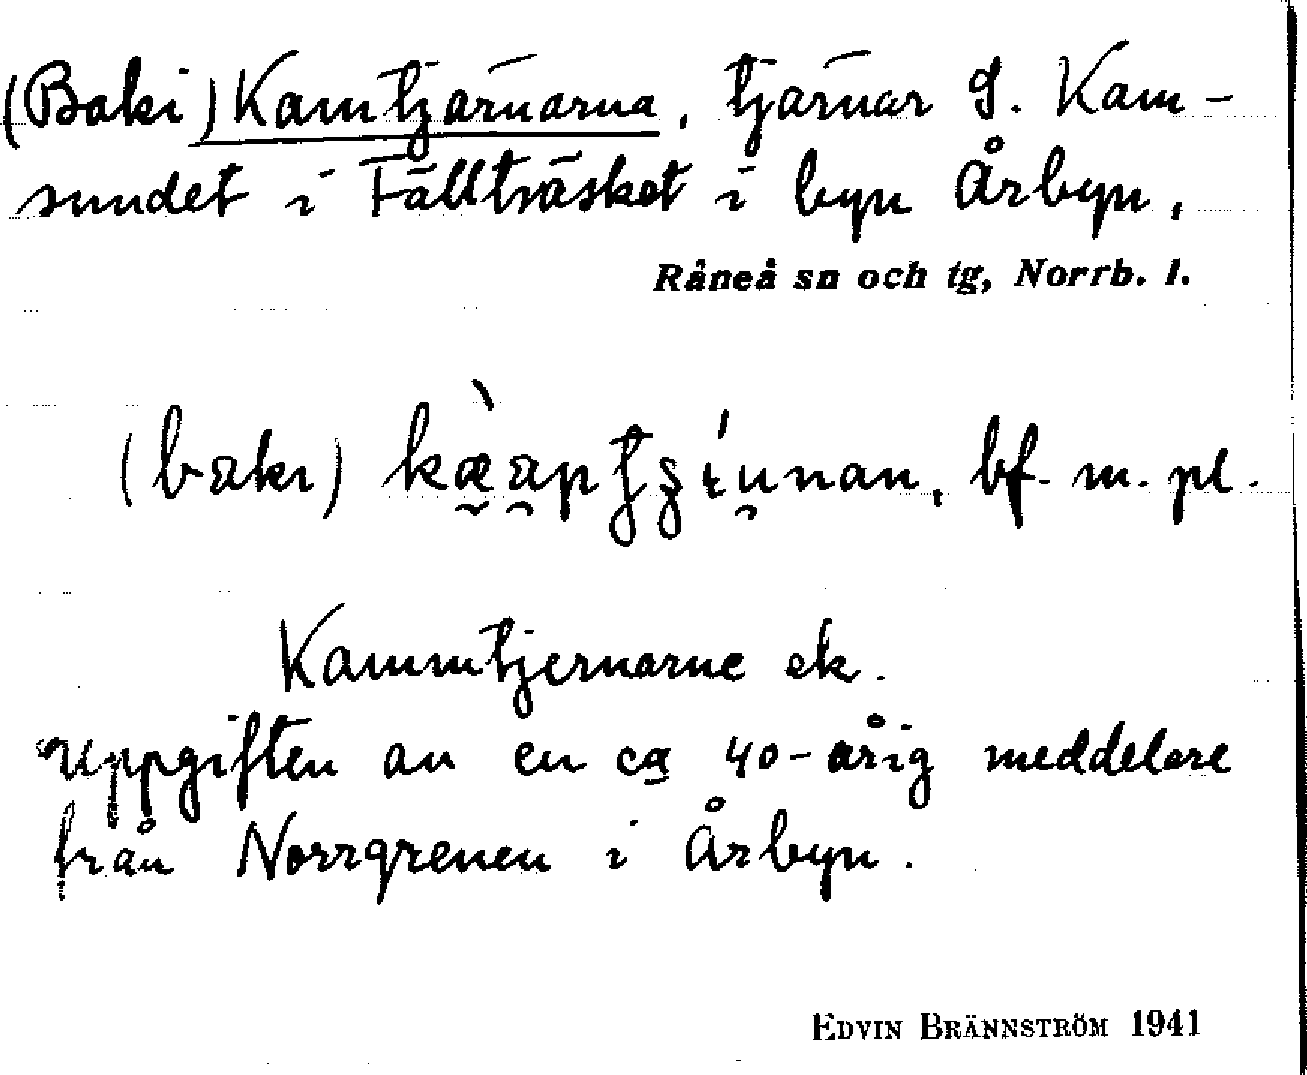 (Baki) Kamtjärnarna, tjärnar S. Kam-
sundet i Fällträsket i byn Årbyn,
Råneå sn och tg, Norrb. l.
(baki) bf. m. pl.
Kammtjernarne ek.
Uppgiften av en ca 40-årig meddelare
från Norrgrenen i Årbyn.
EDVIN BRÄNNSTRÖM 1941